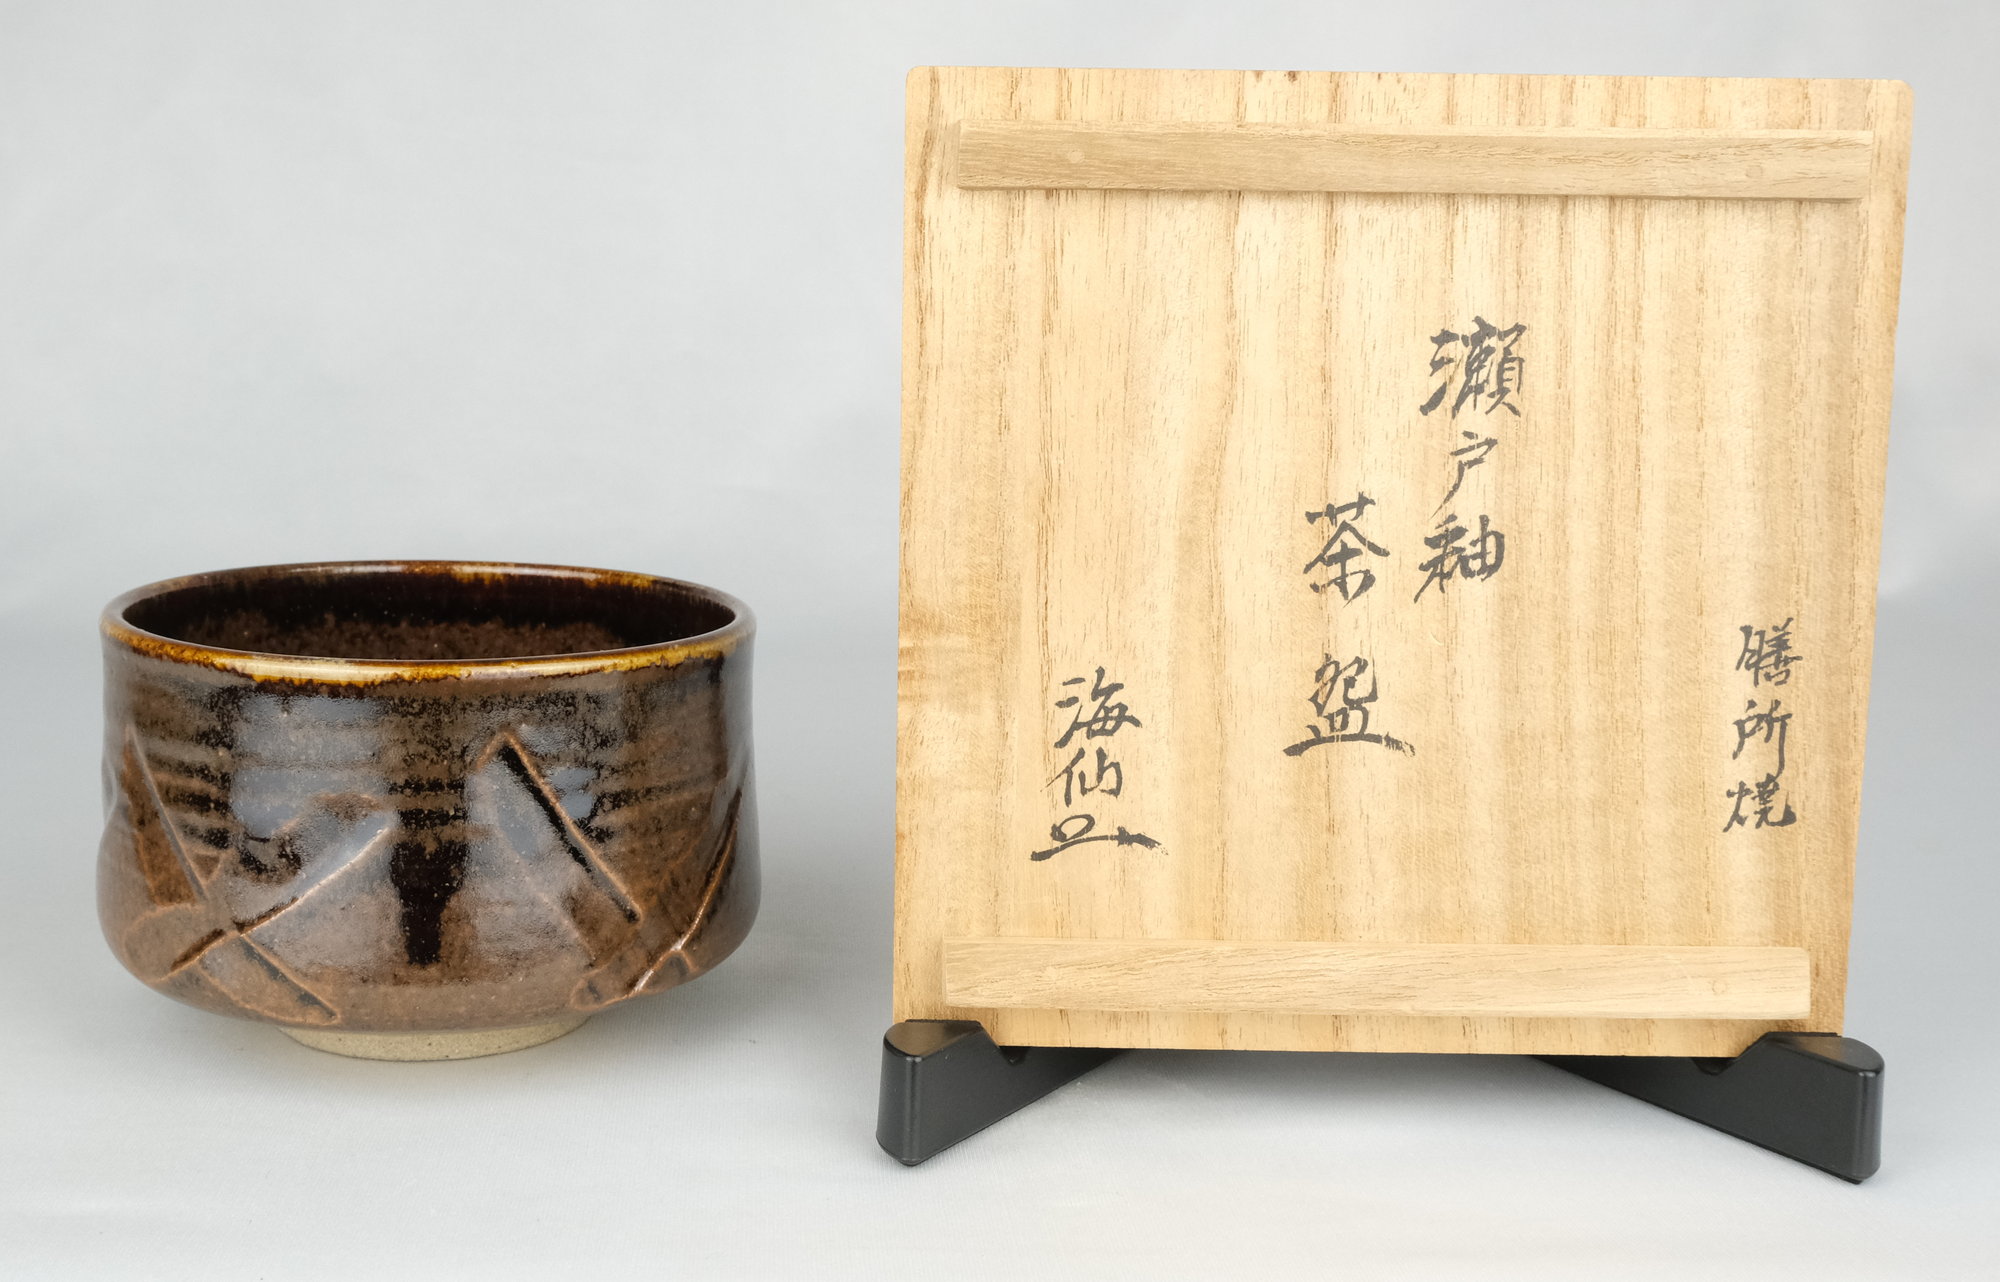 膳所焼
瀬戸釉
茶盌
海仙造